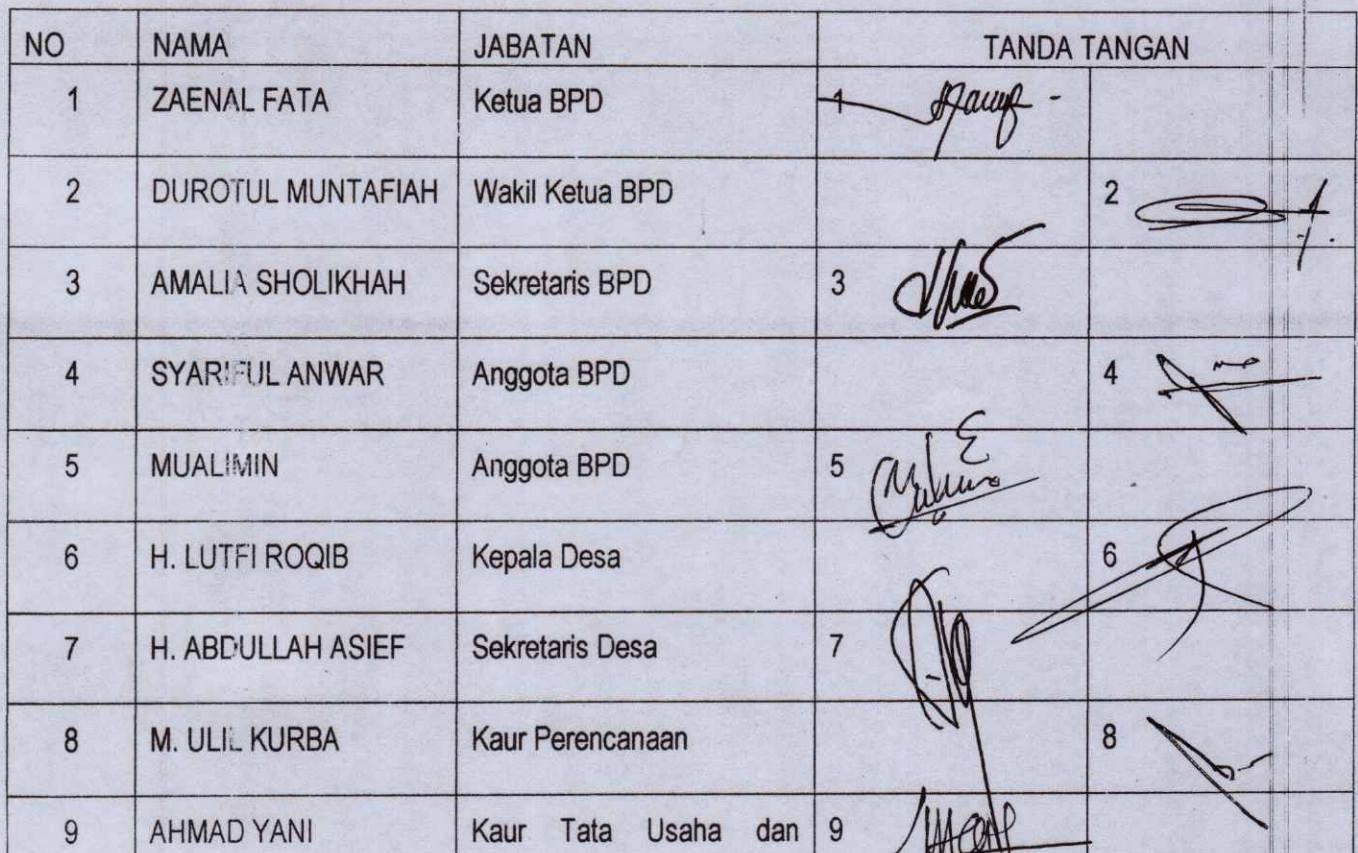 NO NAMA JABATAN TANDA TANGAN
1 ZAENAL FATA Ketua BPD 1
2 DUROTUL MUNTAFIAH Wakil Ketua BPD 2
3 AMALIA SHOLIKHAH Sekretaris BPD 3
4 SYARIFUL ANWAR Anggota BPD 4
5 MUALIMIN Anggota BPD 5
6 H. LUTFI ROQIB Kepala Desa 6
7 H. ABDULLAH ASIEF Sekretaris Desa 7
8 M. ULIL KURBA Kaur Perencanaan 8
9 AHMAD YANI Kaur Tata Usaha dan 9